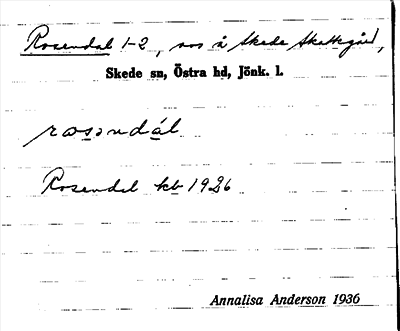 Rosendal 1-2, sos å Skede Skattegård,
Skede sn, Östra hd, Jönk. l.
rosəndál
Rosendal kb 1926
Annalisa Anderson 1936